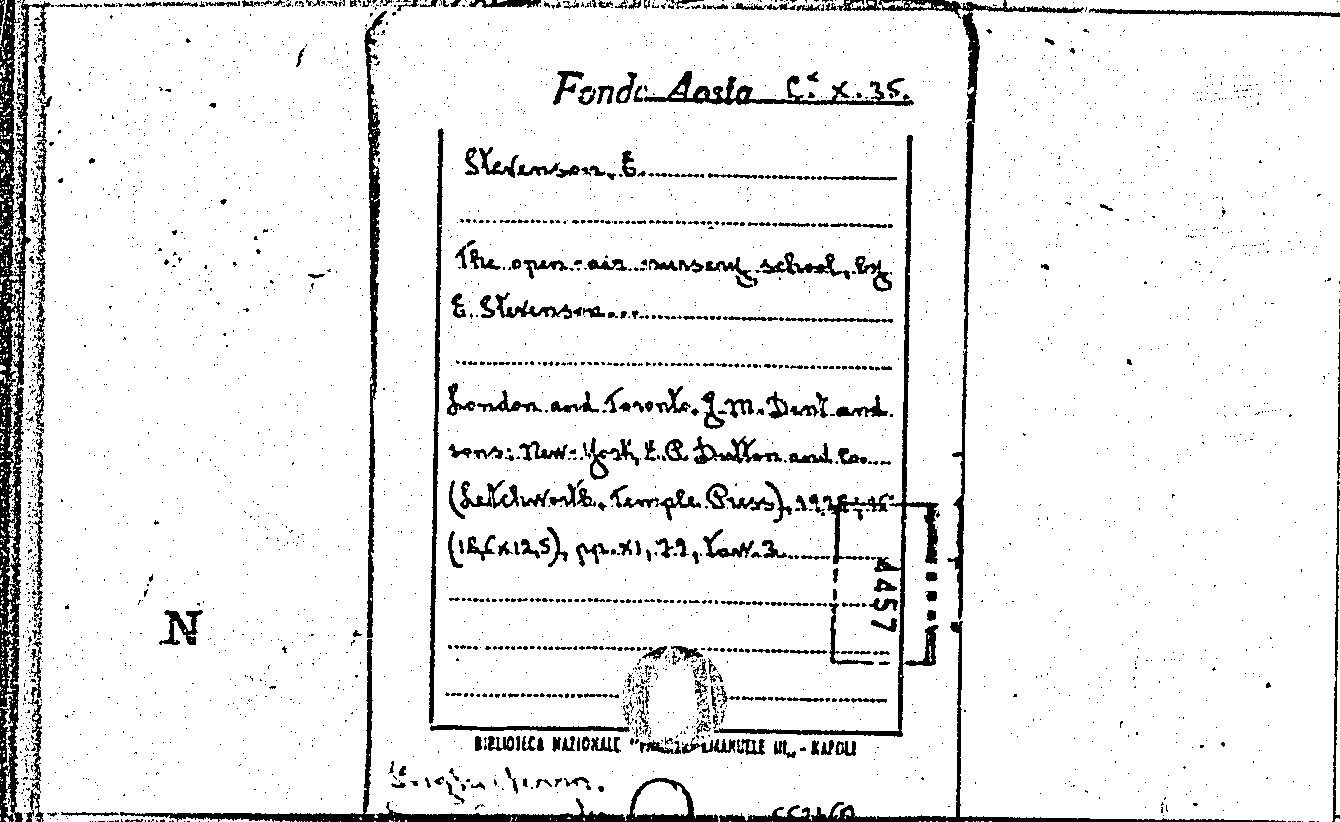 Fondo Aosta C.ᵃ X. 35.
Stevenson, E.
The open-air nursery school, by
E. Stevenson...
London and Toronto, J. M. Dent and
sons: New-York, E. P. Dutton and Co.
(Letchworth, Temple Press),
(18,6x12,5), pp. XI, 79, tav. 3.
4457
N
BIBLIOTECA NAZIONALE " EMANUELE III„ - NAPOLI